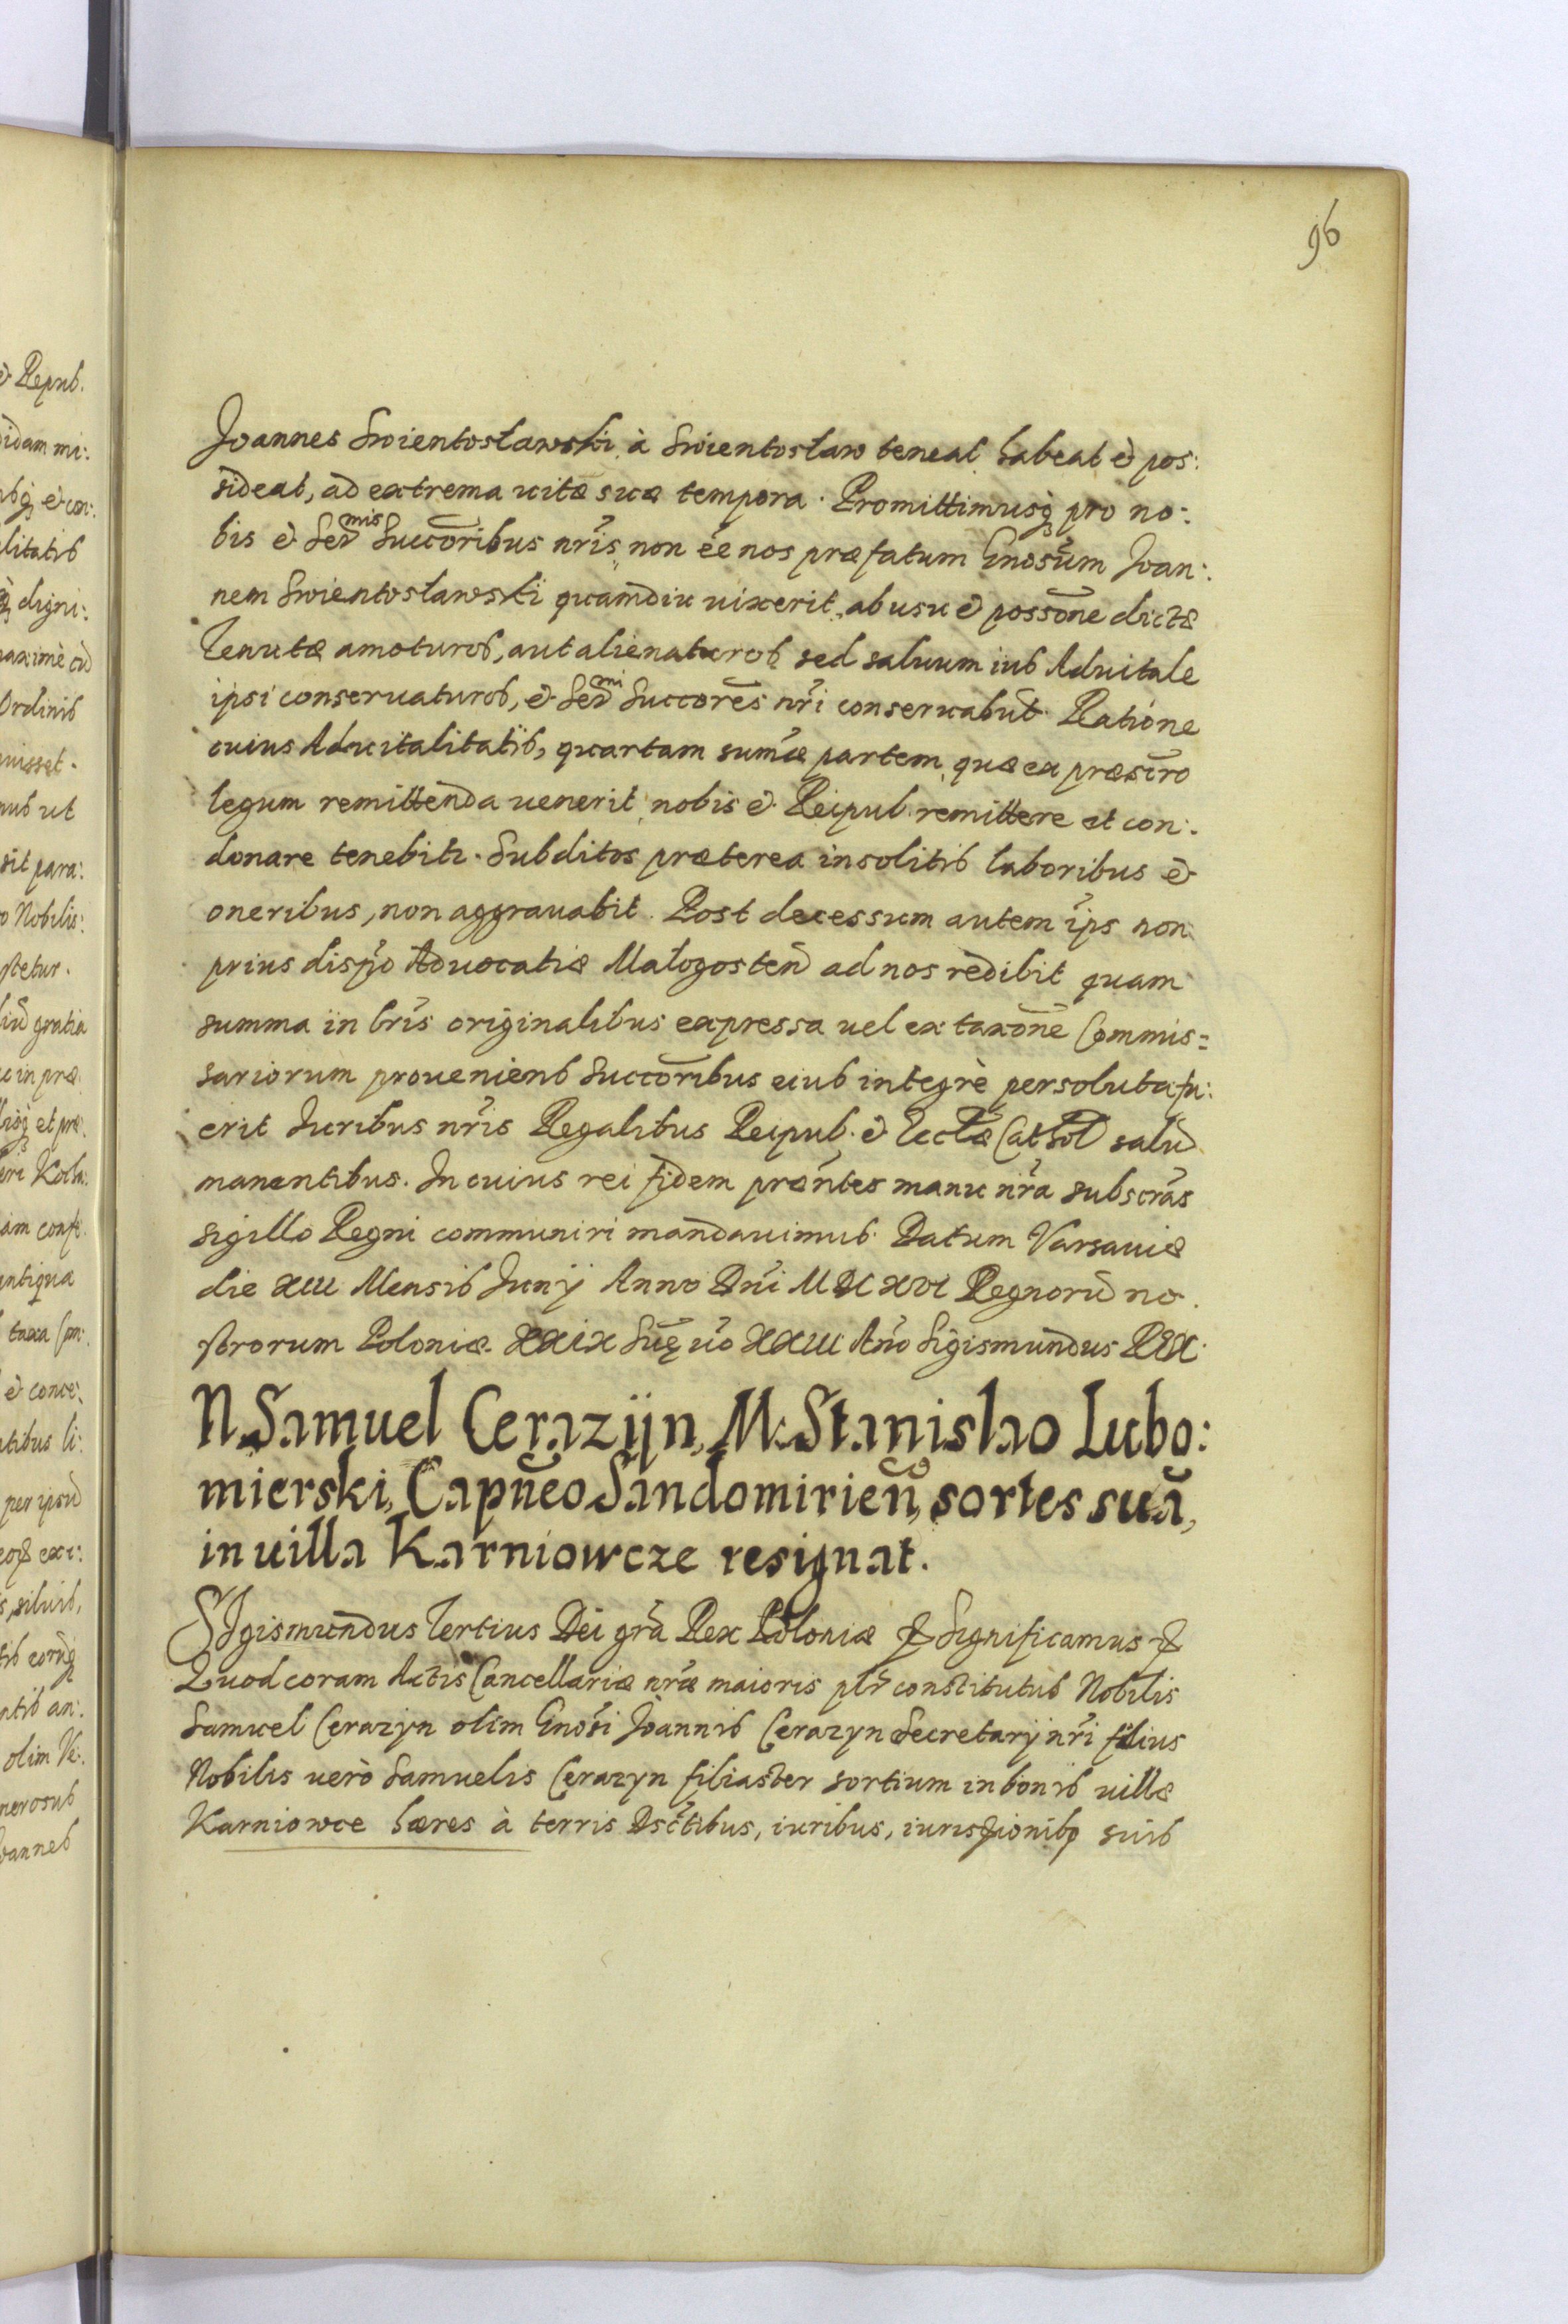 96
Joannes Swientosławski à Swientosław teneat habeat et pos:
sideat, ad extrema uitæ suæ tempora. Promittimusq̃ pro no:
bis et Ser̃mis Succor̃ibus nr̃is, non ẽe nos præfatum Gnosũm Joan:
nem Swientosławski quamdiu uixerit, ab usu et possõne dictæ
Tenutæ amoturos, aut alienaturos sed saluum ius Aduitale
ipsi conseruaturos, et Ser̃mi Succorẽs nr̃i conseruabũt. Ratione
cuius Aduitalitatis, quartam sum̃æ partem, quæ ex præscr̃o
legum remittenda uenerit, nobis et Reipub. remittere et con:
donare tenebitr. Subditos præterea insolitis laboribus et
oneribus, non aggrauabit. Post decessum autem ip̃s non
prius disp̃o Aduocatiæ Małogosteñ ad nos redibit quam
summa in lr̃is originalibus expressa uel ex taxõne Commis=
sariorum proueniens succor̃ibus eius integrè persoluta fu:
erit Juribus nr̃is Regalibus Reipub. et Eccl̃æ Cathol̃ saluis
manentibus. In cuius rei fidem præñtes manu nr̃a subscr̃as
sigillo Regni communiri mandauimus. Datum Varsauiæ
die XIII Mensis Junij Anno Dñi MDCXVI Regnorũ no.
strorum Poloniæ XXIX Suẽ. uõ XXIII Año Sigismundus REX.
N. Samuel Cerazijn, M. Stanislao Lubo:
mierski, Capñeo Sandomirieñ, sortes suã,
in uilla Karniowcze resignat.
SIgismundus Tertius Dei gr̃a Rex Poloniæ &c Significamus &c
Quod coram Actis Cancellariæ nr̃æ maioris pl̃r constitutus Nobilis
Samuel Cerazyn olim Gnosĩ Joannis Cerazyn Secretarij nr̃i filius
Nobilis uerò Samuelis Cerazyn filiaster sortium in bonis uillæ
Karniowce hæres à terris Dsct̃ibus, iuribus, iurisd̃ionibq suis